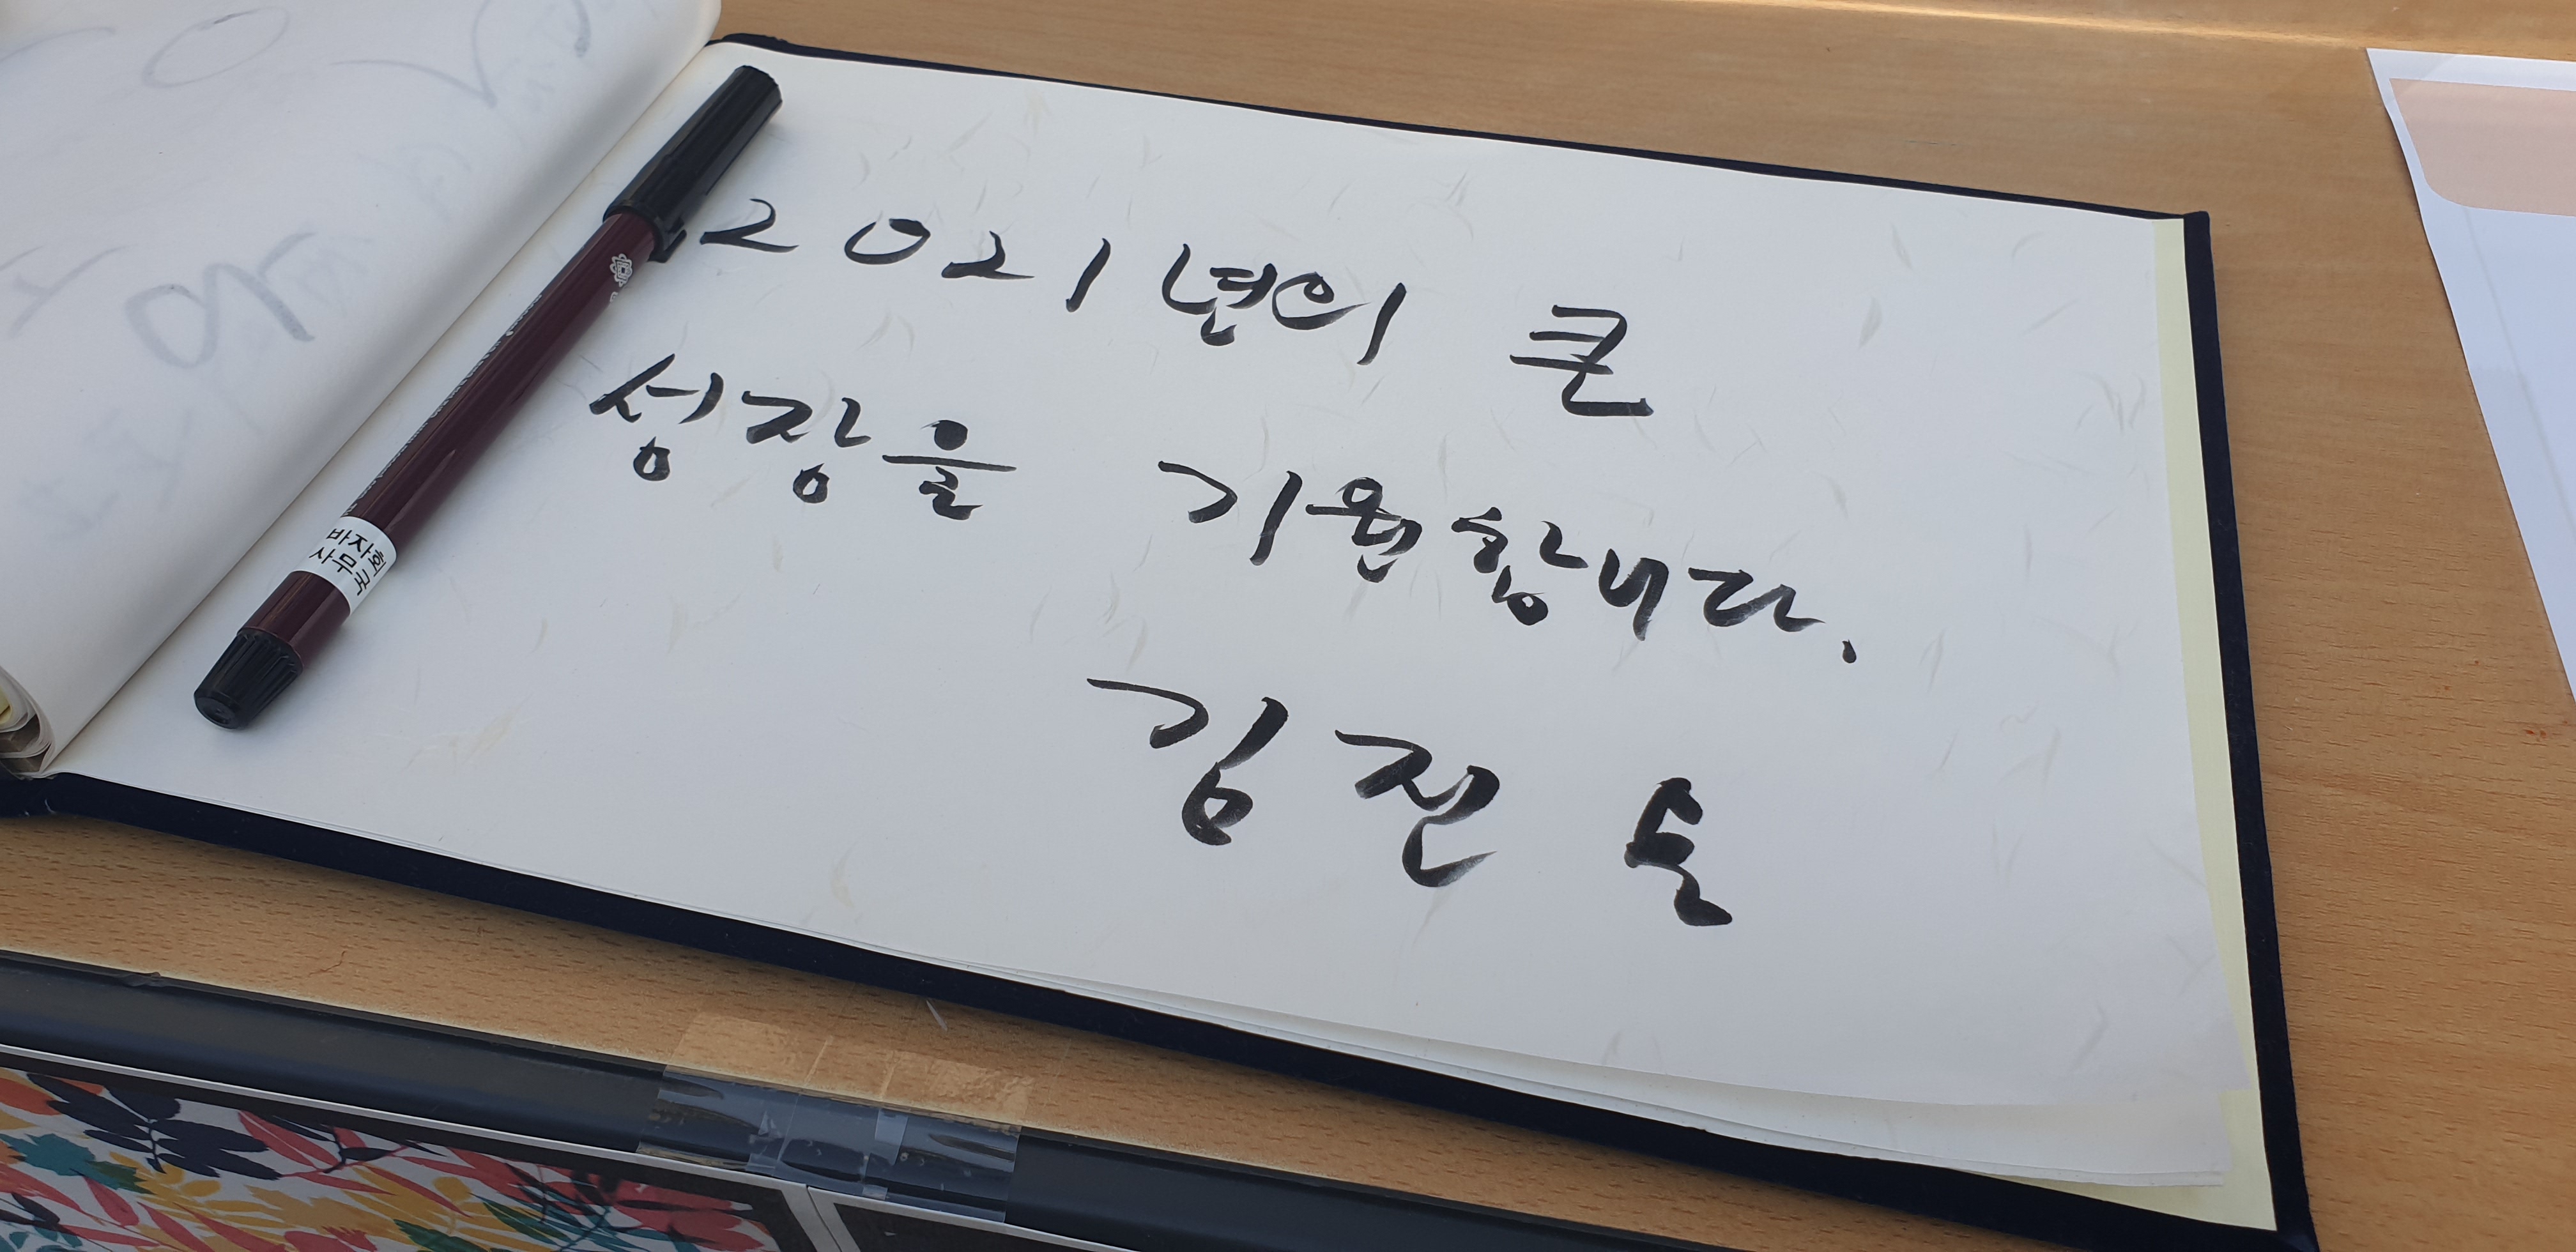 2021년의 큰
성장을 기원합니다.
김진
바자회
사무국